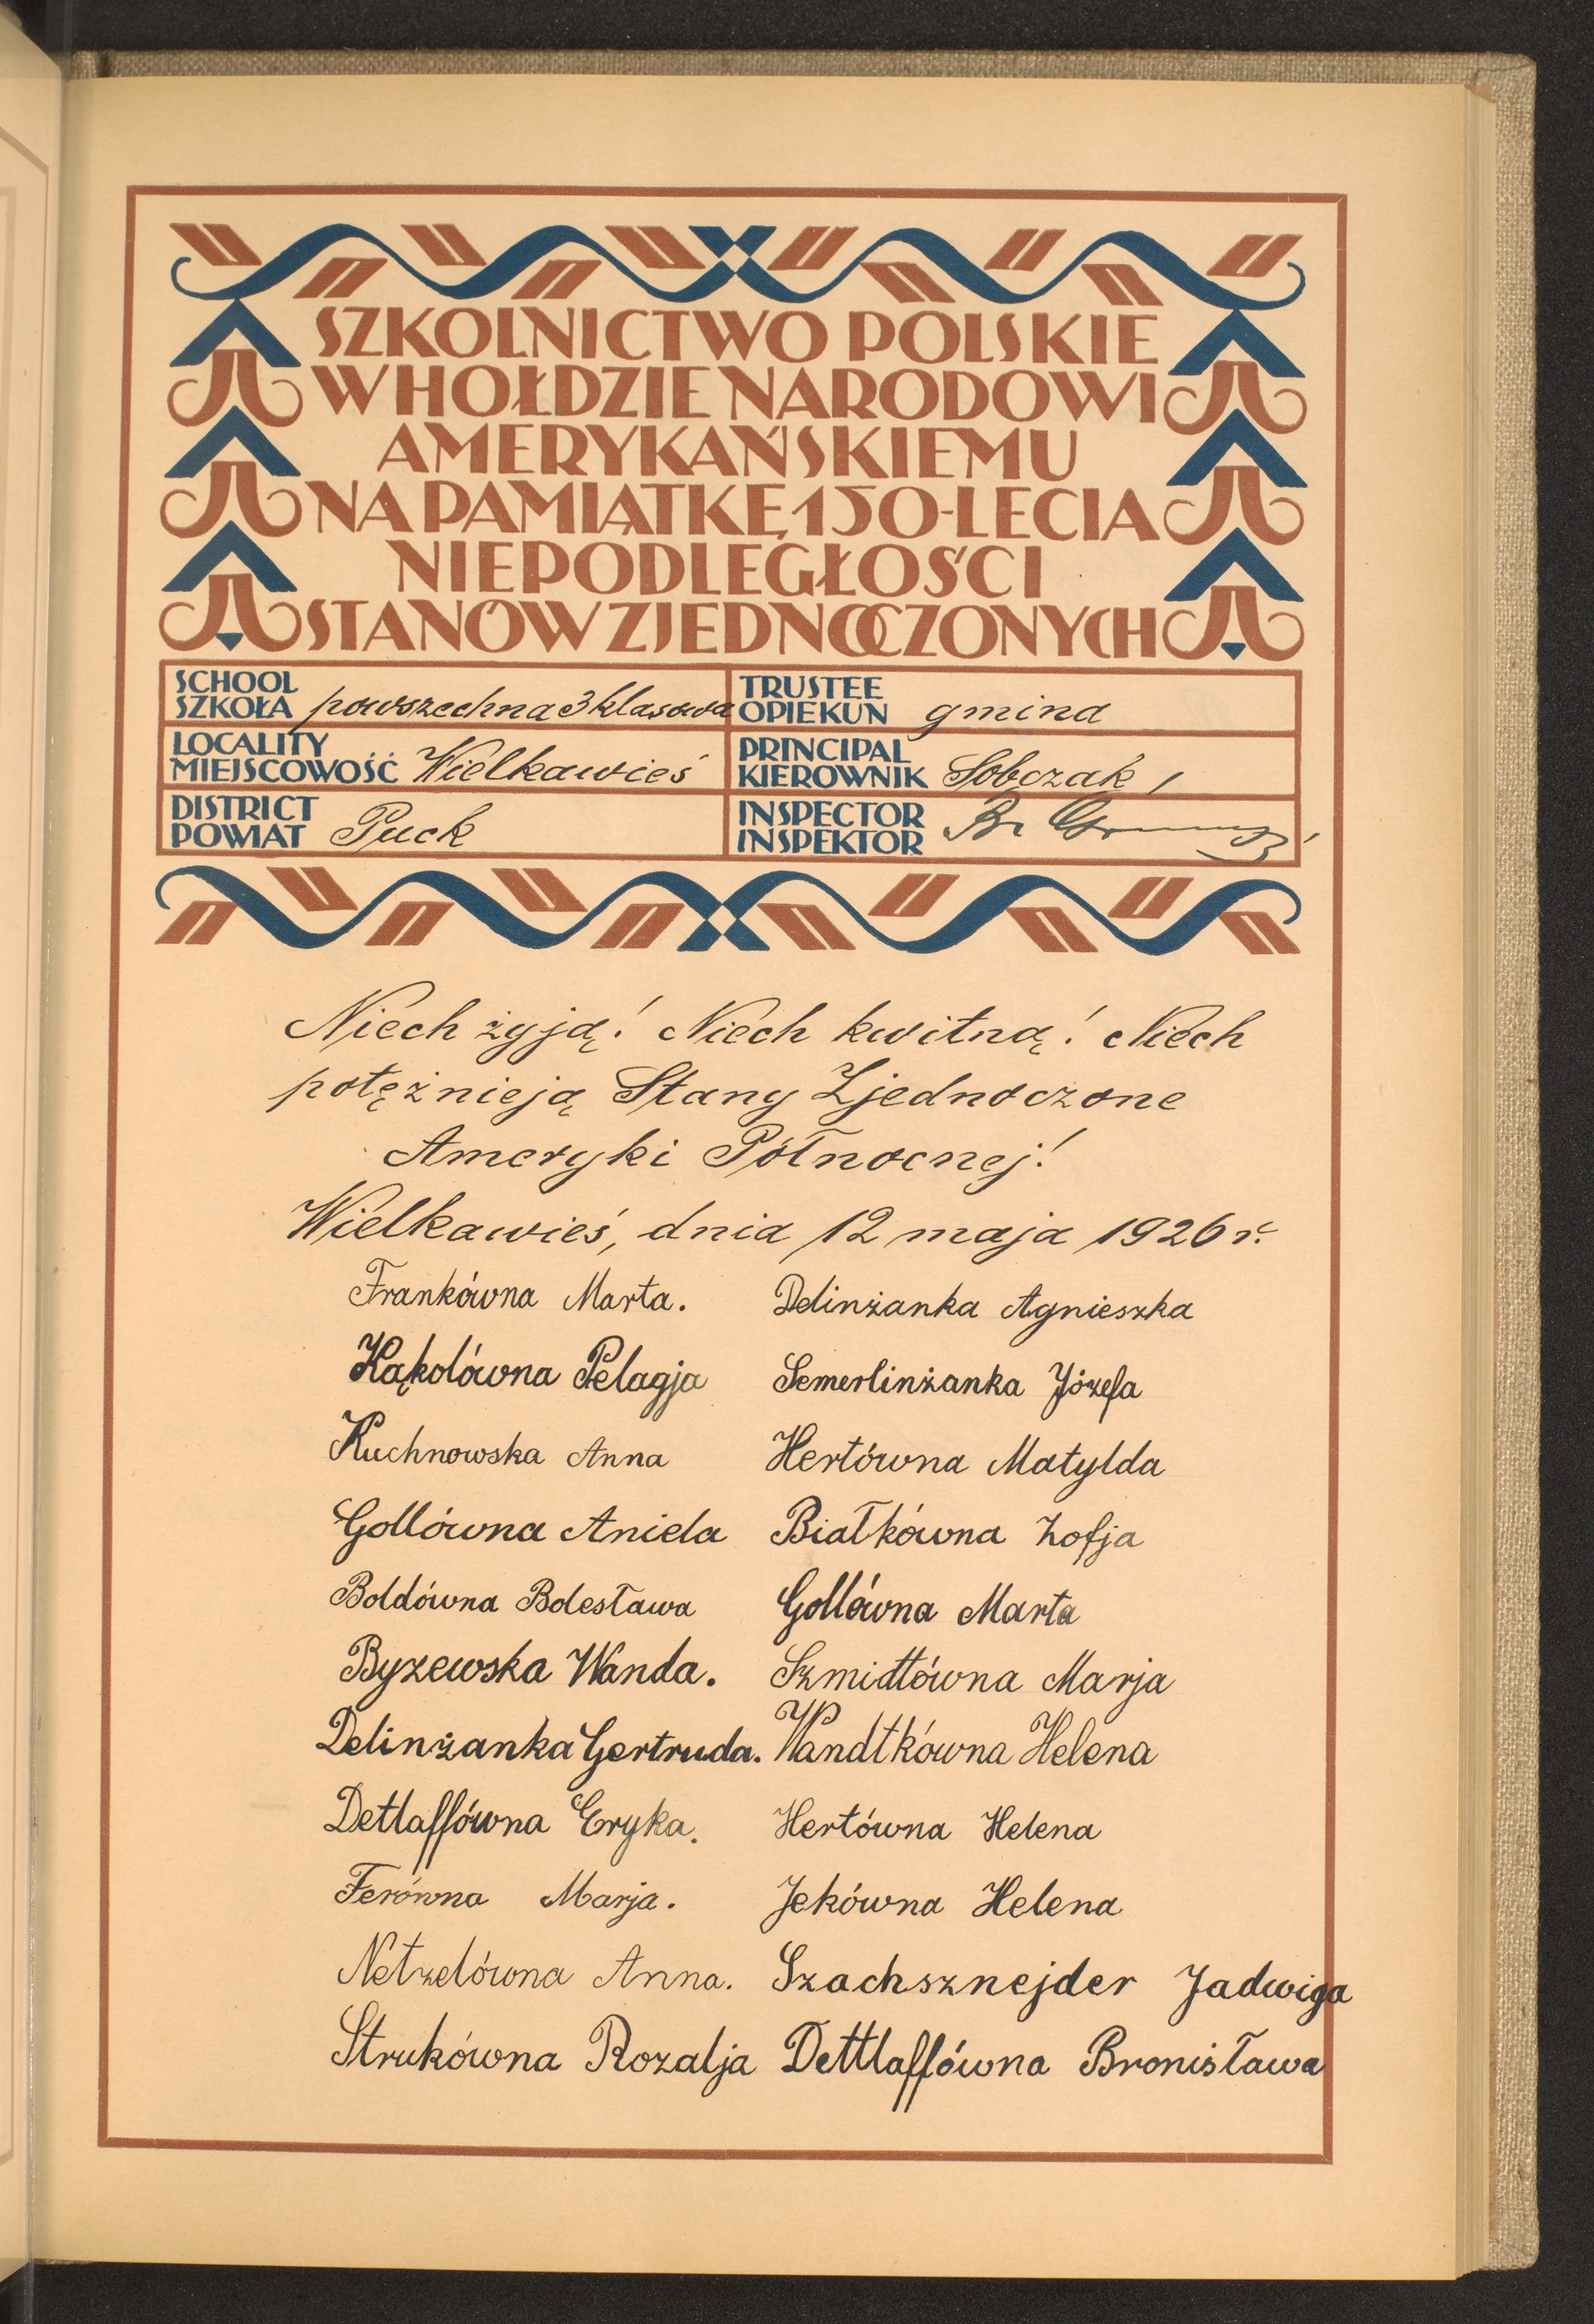 SZKOLNICTWO POLSKIE
W HOŁDZIE NARODOWI
AMERYKAŃSKIEMU
NA PAMIĄTKĘ 150-LECIA
NIEPODLEGŁOŚCI
STANÓW ZJEDNOCZONYCH
SCHOOL
SZKOŁA powszechna 3 klasowa
TRUSTEE
OPIEKUN gmina
LOCALITY
MIEJSCOWOŚĆ Wielkawieś
PRINCIPAL
KIEROWNIK Sobczak
DISTRICT
POWIAT Puck
INSPECTOR
INSPEKTOR
Niech żyją! Niech kwitną! Niech
potężnieją Stany Zjednoczone
Ameryki Północnej!
Wielkawieś, dnia 12 maja 1926 r.
Frankówna Marta. Delinżanka Agnieszka
Kąkolówna Pelagja Semerlinżanka Józefa
Kuchnowska Anna Hertówna Matylda
Gollówna Aniela Białkówna Zofja
Boldówna Bolesława Gollówna Marta
Byzewska Wanda. Szmidtówna Marja
Delinżanka Gertruda. Wandtkówna Helena
Detlaffówna Eryka. Hertówna Helena
Ferówna Marja. Jekówna Helena
Netzelówna Anna. Szachsznejder Jadwiga
Strukówna Rozalja Dettlaffówna Bronisława